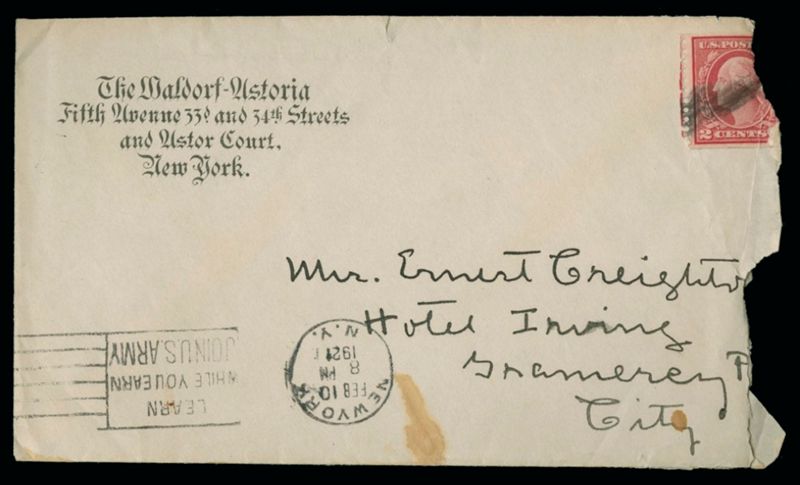 The Waldorf-Astoria
Fifth Avenue 33d and 34th Streets
and Astor Court.
New York.
U.S. POST
2 CENTS
Mr. Ernest Creighto
Hotel Irving
Gramercy P
City
LEARN
WHILE YOU EARN
JOIN U.S. ARMY
NEW YORK
FEB 10
8 PM
1921
N.Y.